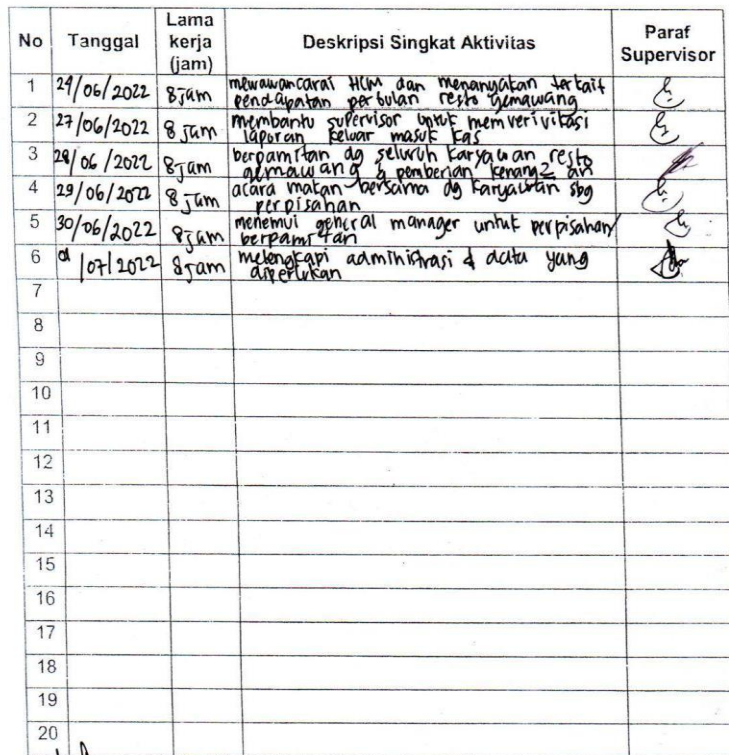 No Tanggal Lama kerja (jam) Deskripsi Singkat Aktivitas Paraf Supervisor
1 24/06/2022 8 jam mewawancarai HCM dan menanyakan terkait
pendapatan perbulan resto gemawang
2 27/06/2022 8 jam membantu supervisor untuk memverivikasi
laporan keluar masuk kas
3 28/06/2022 8 jam berpamitan dg seluruh karyawan resto
gemawang & pemberian kenang2 an
4 29/06/2022 8 jam acara makan bersama dg karyawan sbg
perpisahan
5 30/06/2022 8 jam menemui general manager untuk perpisahan/
berpamitan
6 01/07/2022 8 jam melengkapi administrasi & data yang
diperlukan
7
8
9
10
11
12
13
14
15
16
17
18
19
20